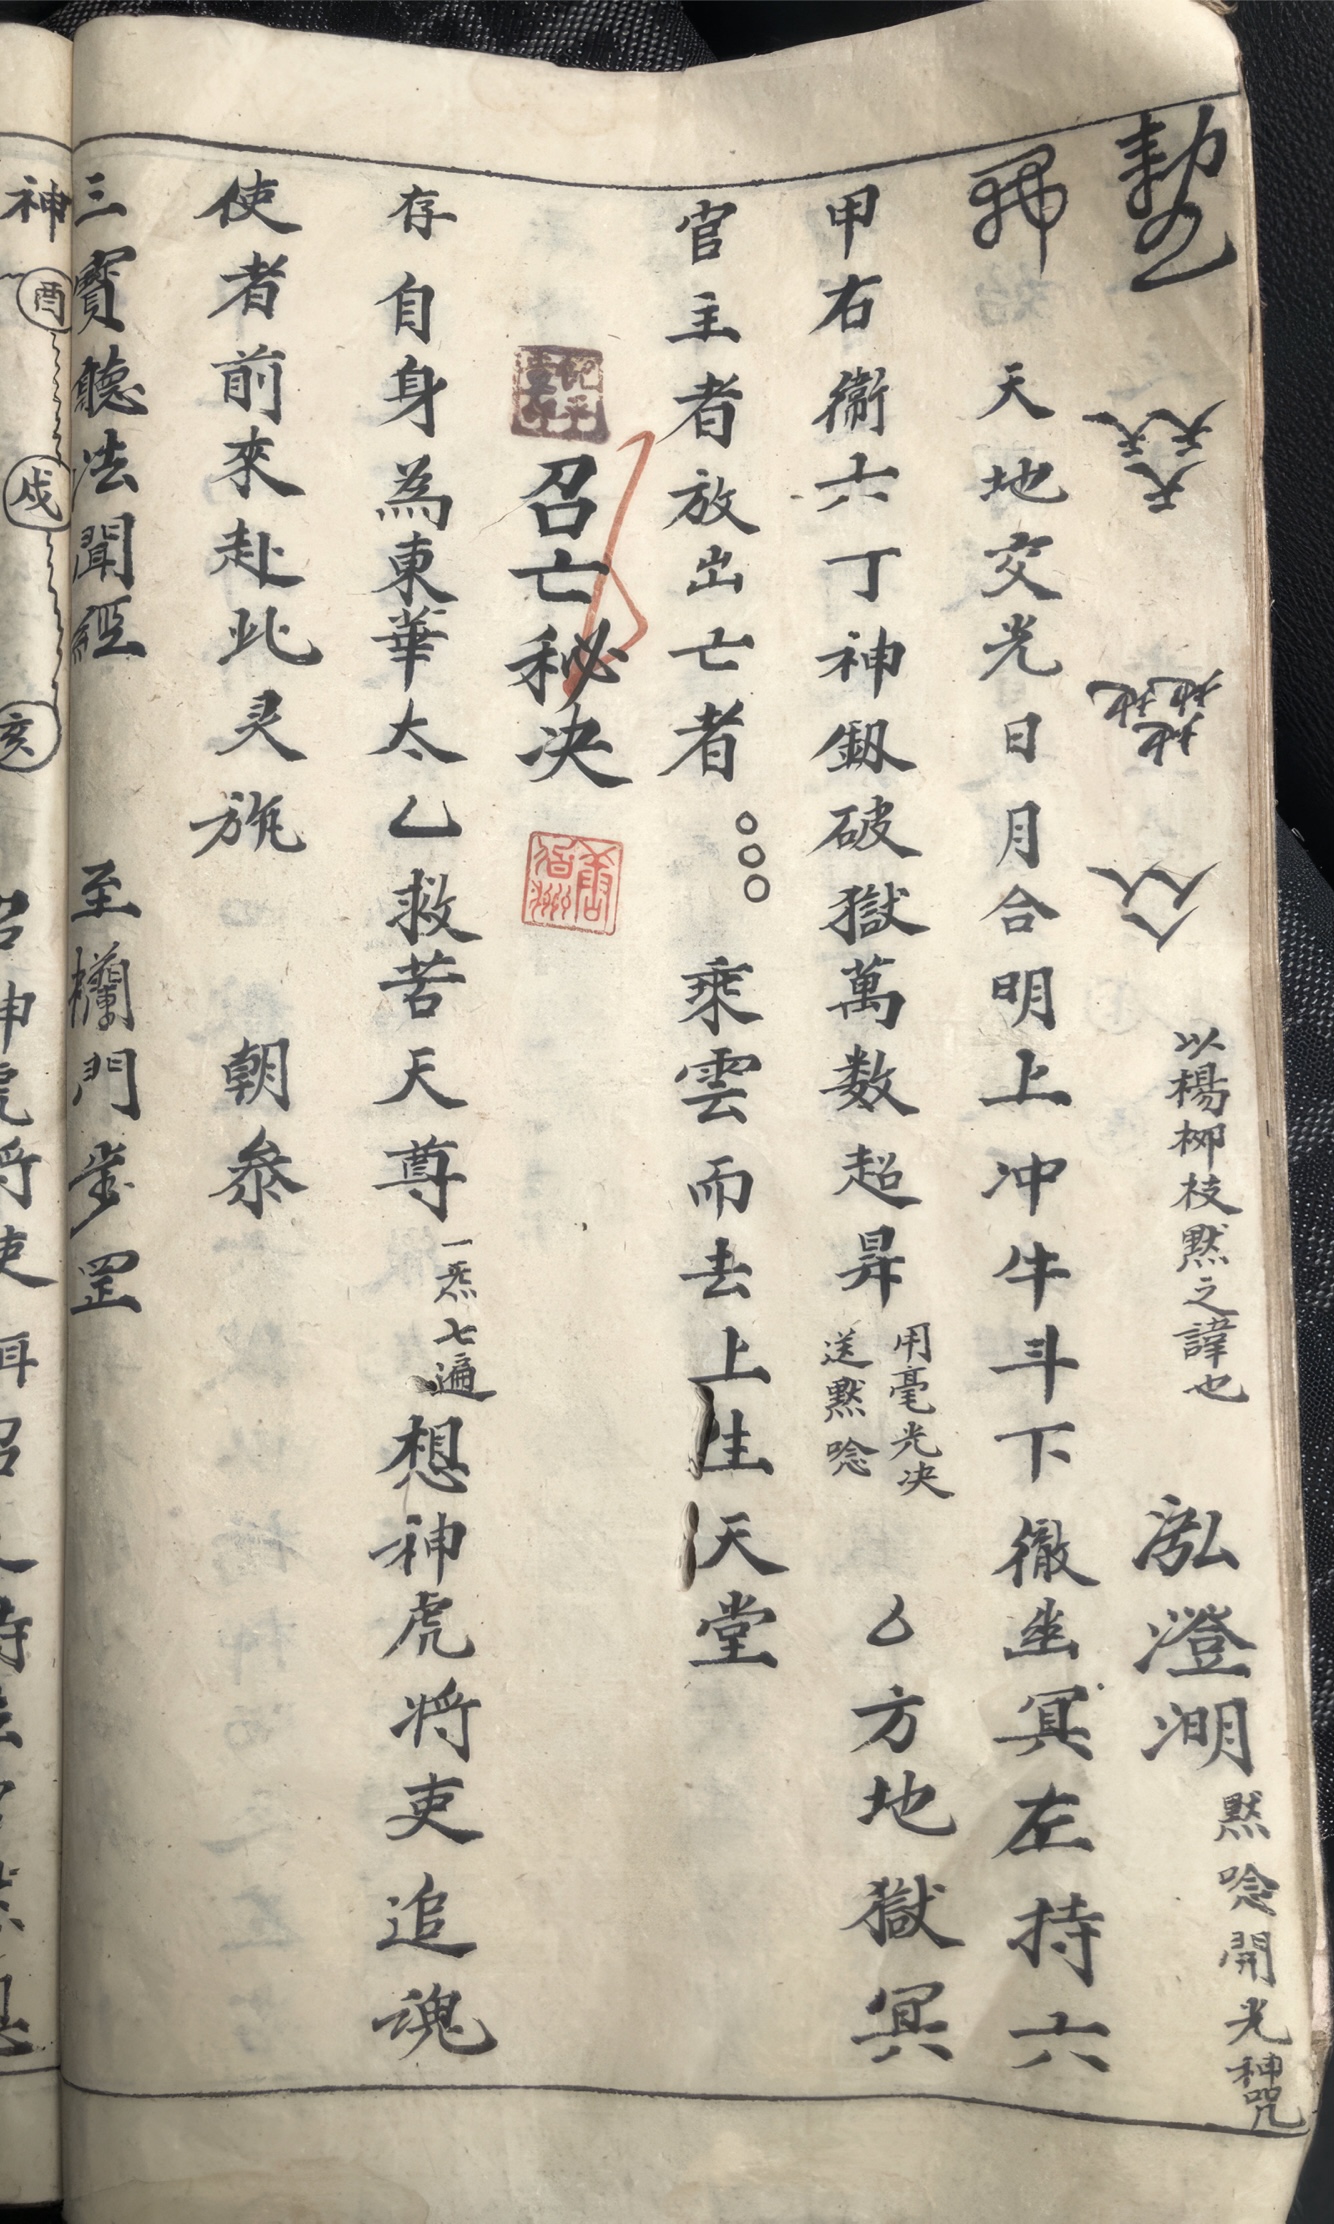 勅 天天天 地地地 人人人 以楊柳枝黙之諱也 泓澄淜 黙唸開光神咒
天地交光日月合明上冲牛斗下徹坐冥左持六
甲右衛六丁神劔破獄萬数超昇 用毫光决送黙唸 乙方地獄冥
官主者放出亡者○○○ 乘雲而去上生天堂
召亡秘决
存自身為東華太乙救苦天尊 一炁七遍 想神虎将吏追魂
使者前來赴此灵旐 朝叅
三寳聽法聞經 至欄門歩罡
神 酉 戌 亥